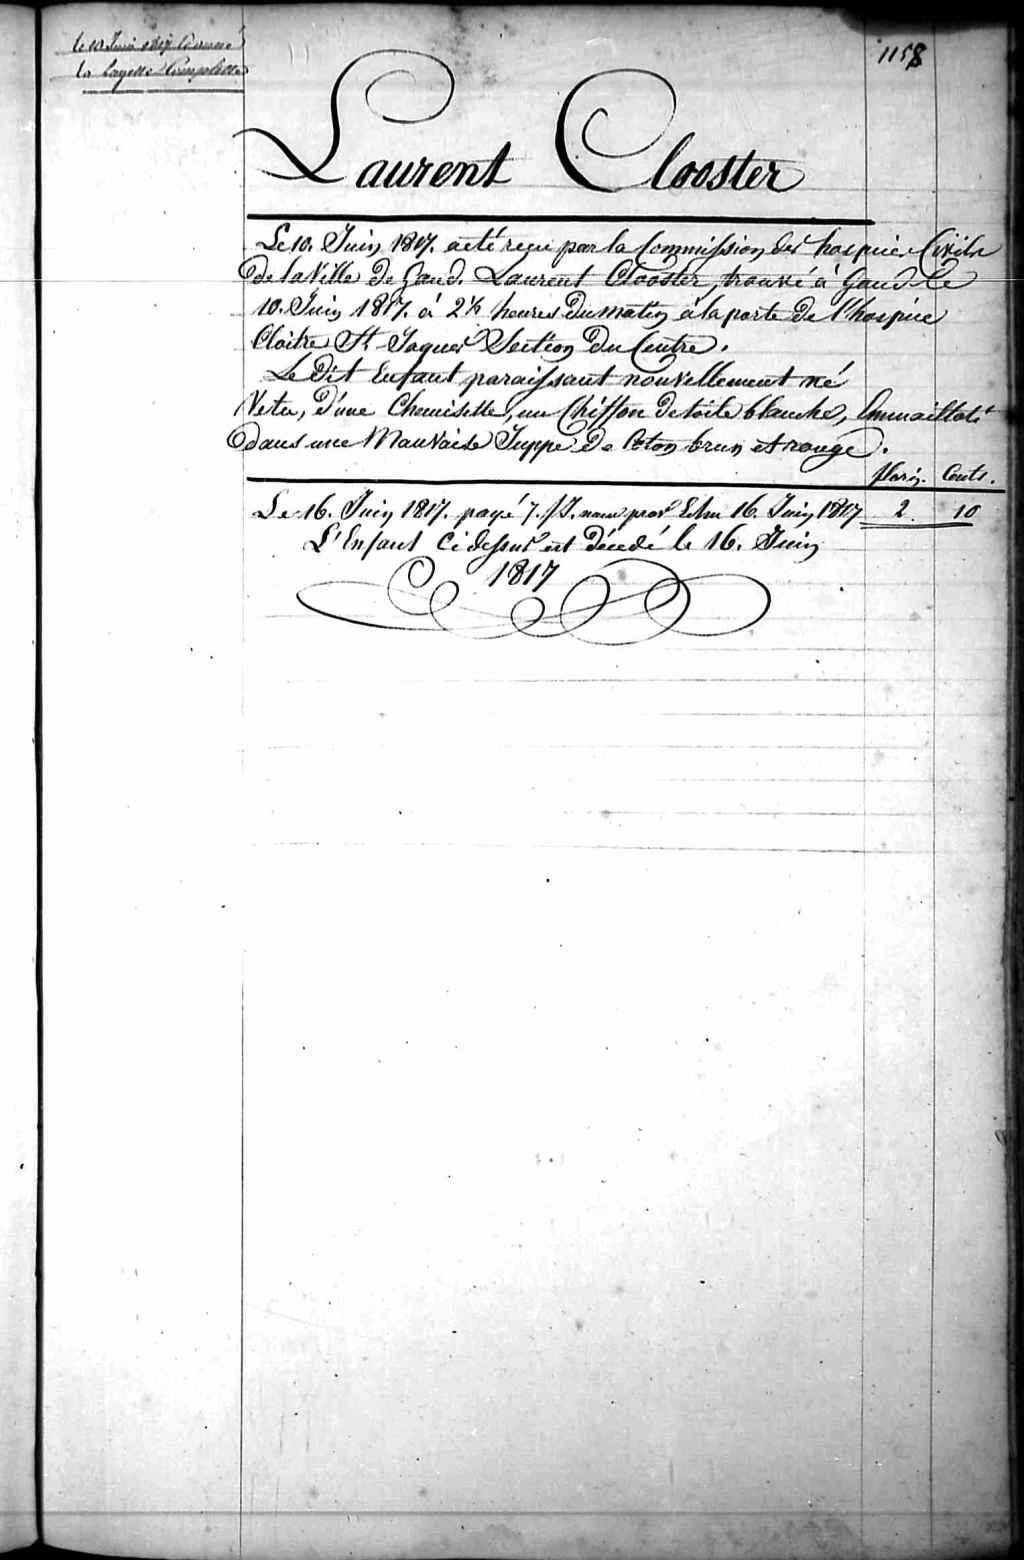 le 10 Juin 1817 donné
la layette Complette
1158
Laurent Clooster
Le 10. Juin 1817. a été reçu par la Commission des hospices Civils
de la Ville de Gand. Laurent Clooster, trouvé à Gand le
10. Juin 1817. à 2 ½ heures du matin à la porte de l'hospice
Cloitre St. Jaques Section du Centre.
Le Dit Enfant paraissant nouvellement né
Vetu, d'une Chemisette, un Chiffon de toile blanche, Emmailloté
dans une Mauvaise Juppe de Coton brun et rouge.
florins. Cents.
Le 16. Juin 1817. payé 7. Jrs. 16. Juin 1817 2 10
L'Enfant Ci dessus est Décédé le 16. Juin
1817